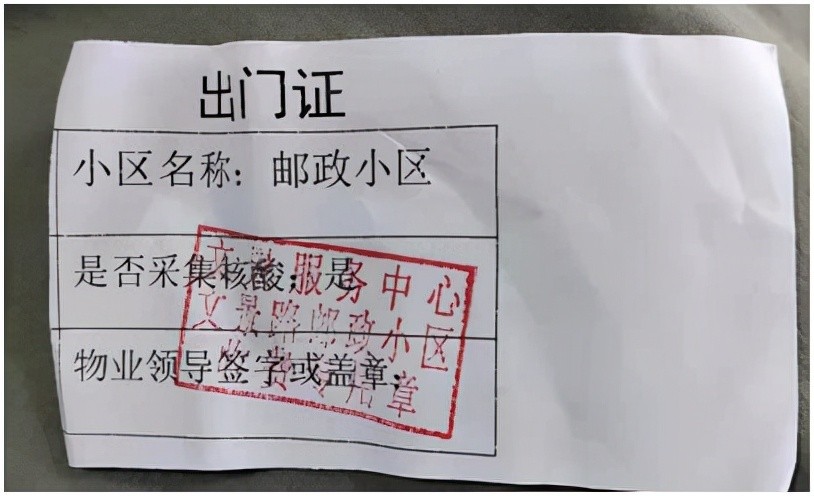 出门证
小区名称：邮政小区
是否采集核酸：是
物业领导签字或盖章：
服务中心
文景路邮政小区
收费专用章